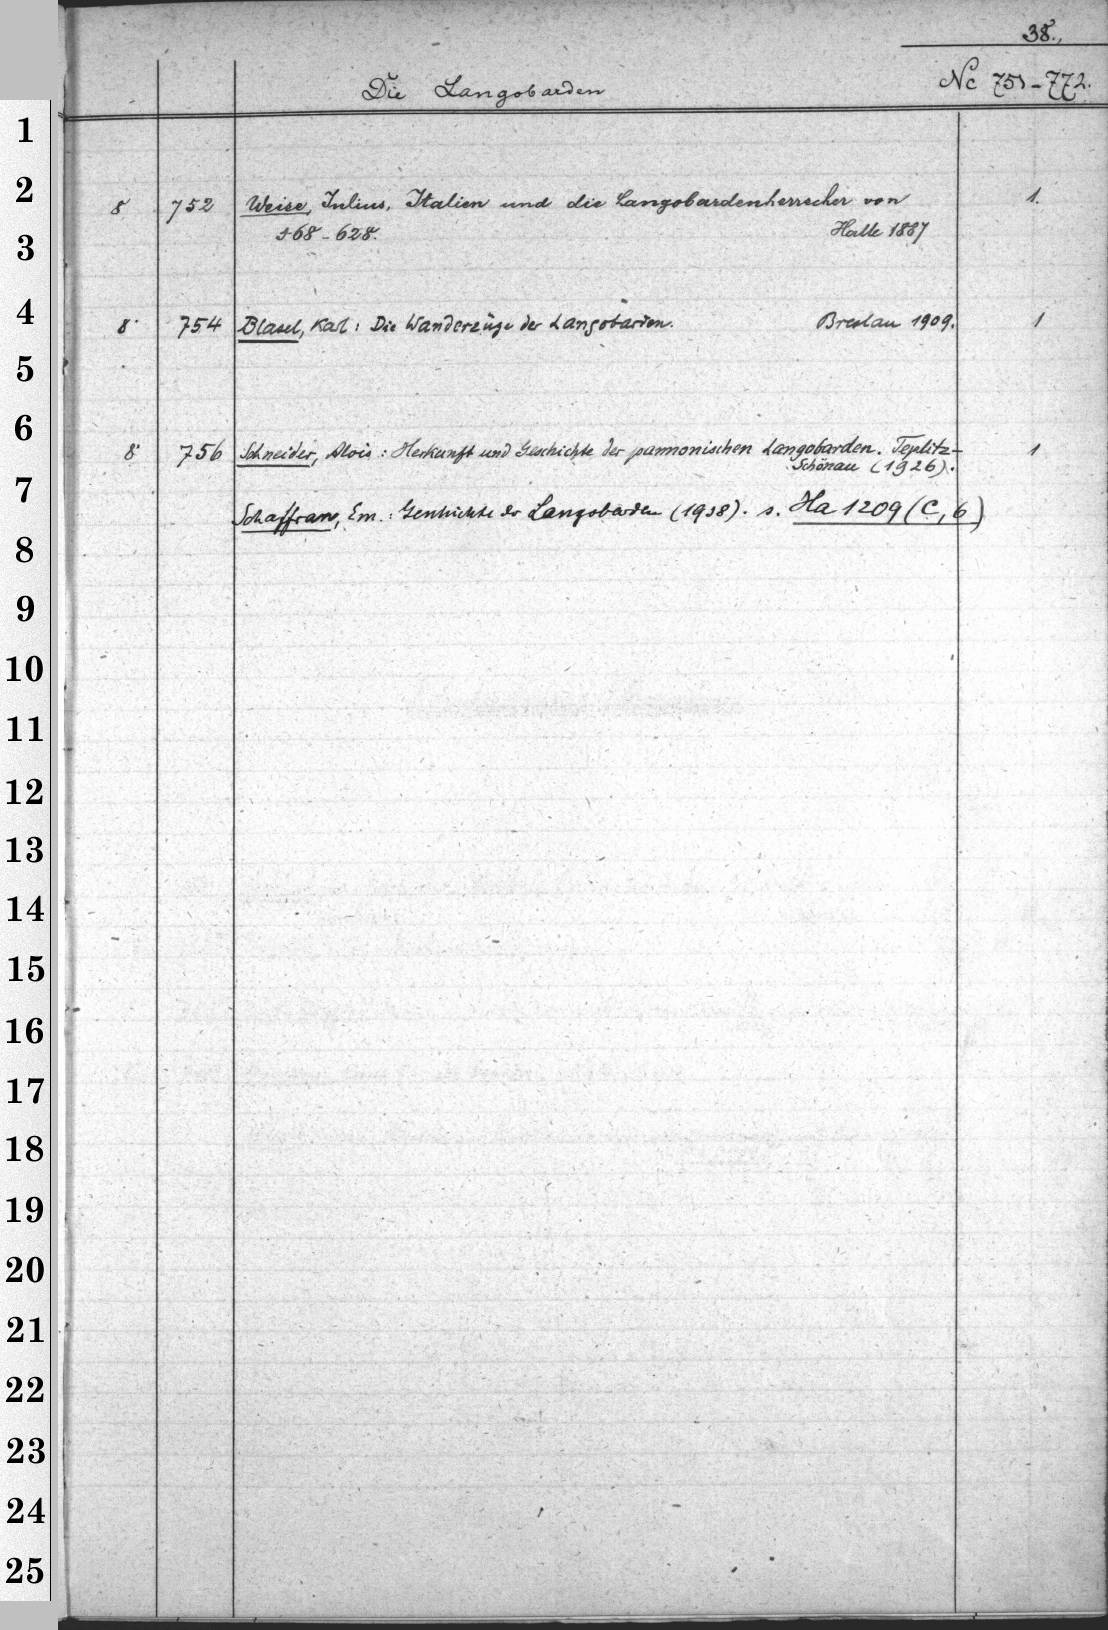 38.,
Die Langobarden Nc 751-772.
1
2
8 752 Weise, Julius, Italien und die Langobardenherrscher von 1.
568-628. Halle 1887
3
4
8° 754 Blasel, Karl: Die Wanderzüge der Langobarden. Breslau 1909. 1
5
6
8° 756 Schneider, Alois: Herkunft und Geschichte der pannonischen Langobarden. Teplitz- 1
Schönau (1926).
7
Schaffran, Em.: Geschichte der Langobarden (1938). s. Ha 1209 (C, 6)
8
9
10
11
12
13
14
15
16
17
18
19
20
21
22
23
24
25